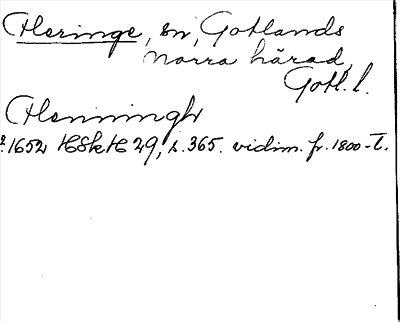 Heringe, sn, Gotlands
norra härad,
Gotl. l.
Henningh
1652 HSkH 29, s. 365. vidim. fr. 1800-t.